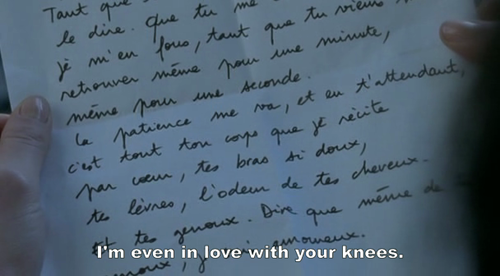 Tant que
le dire. Que tu me
je m'en fous, tant que tu viens
retrouver même pour une minute,
même pour une seconde.
La patience me va, et en t'attendant,
c'est tout ton corps que je récite
par cœur, tes bras si doux,
tes lèvres, l'odeur de tes cheveux.
Et tes genoux. Dire que même de
amoureux.
I'm even in love with your knees.